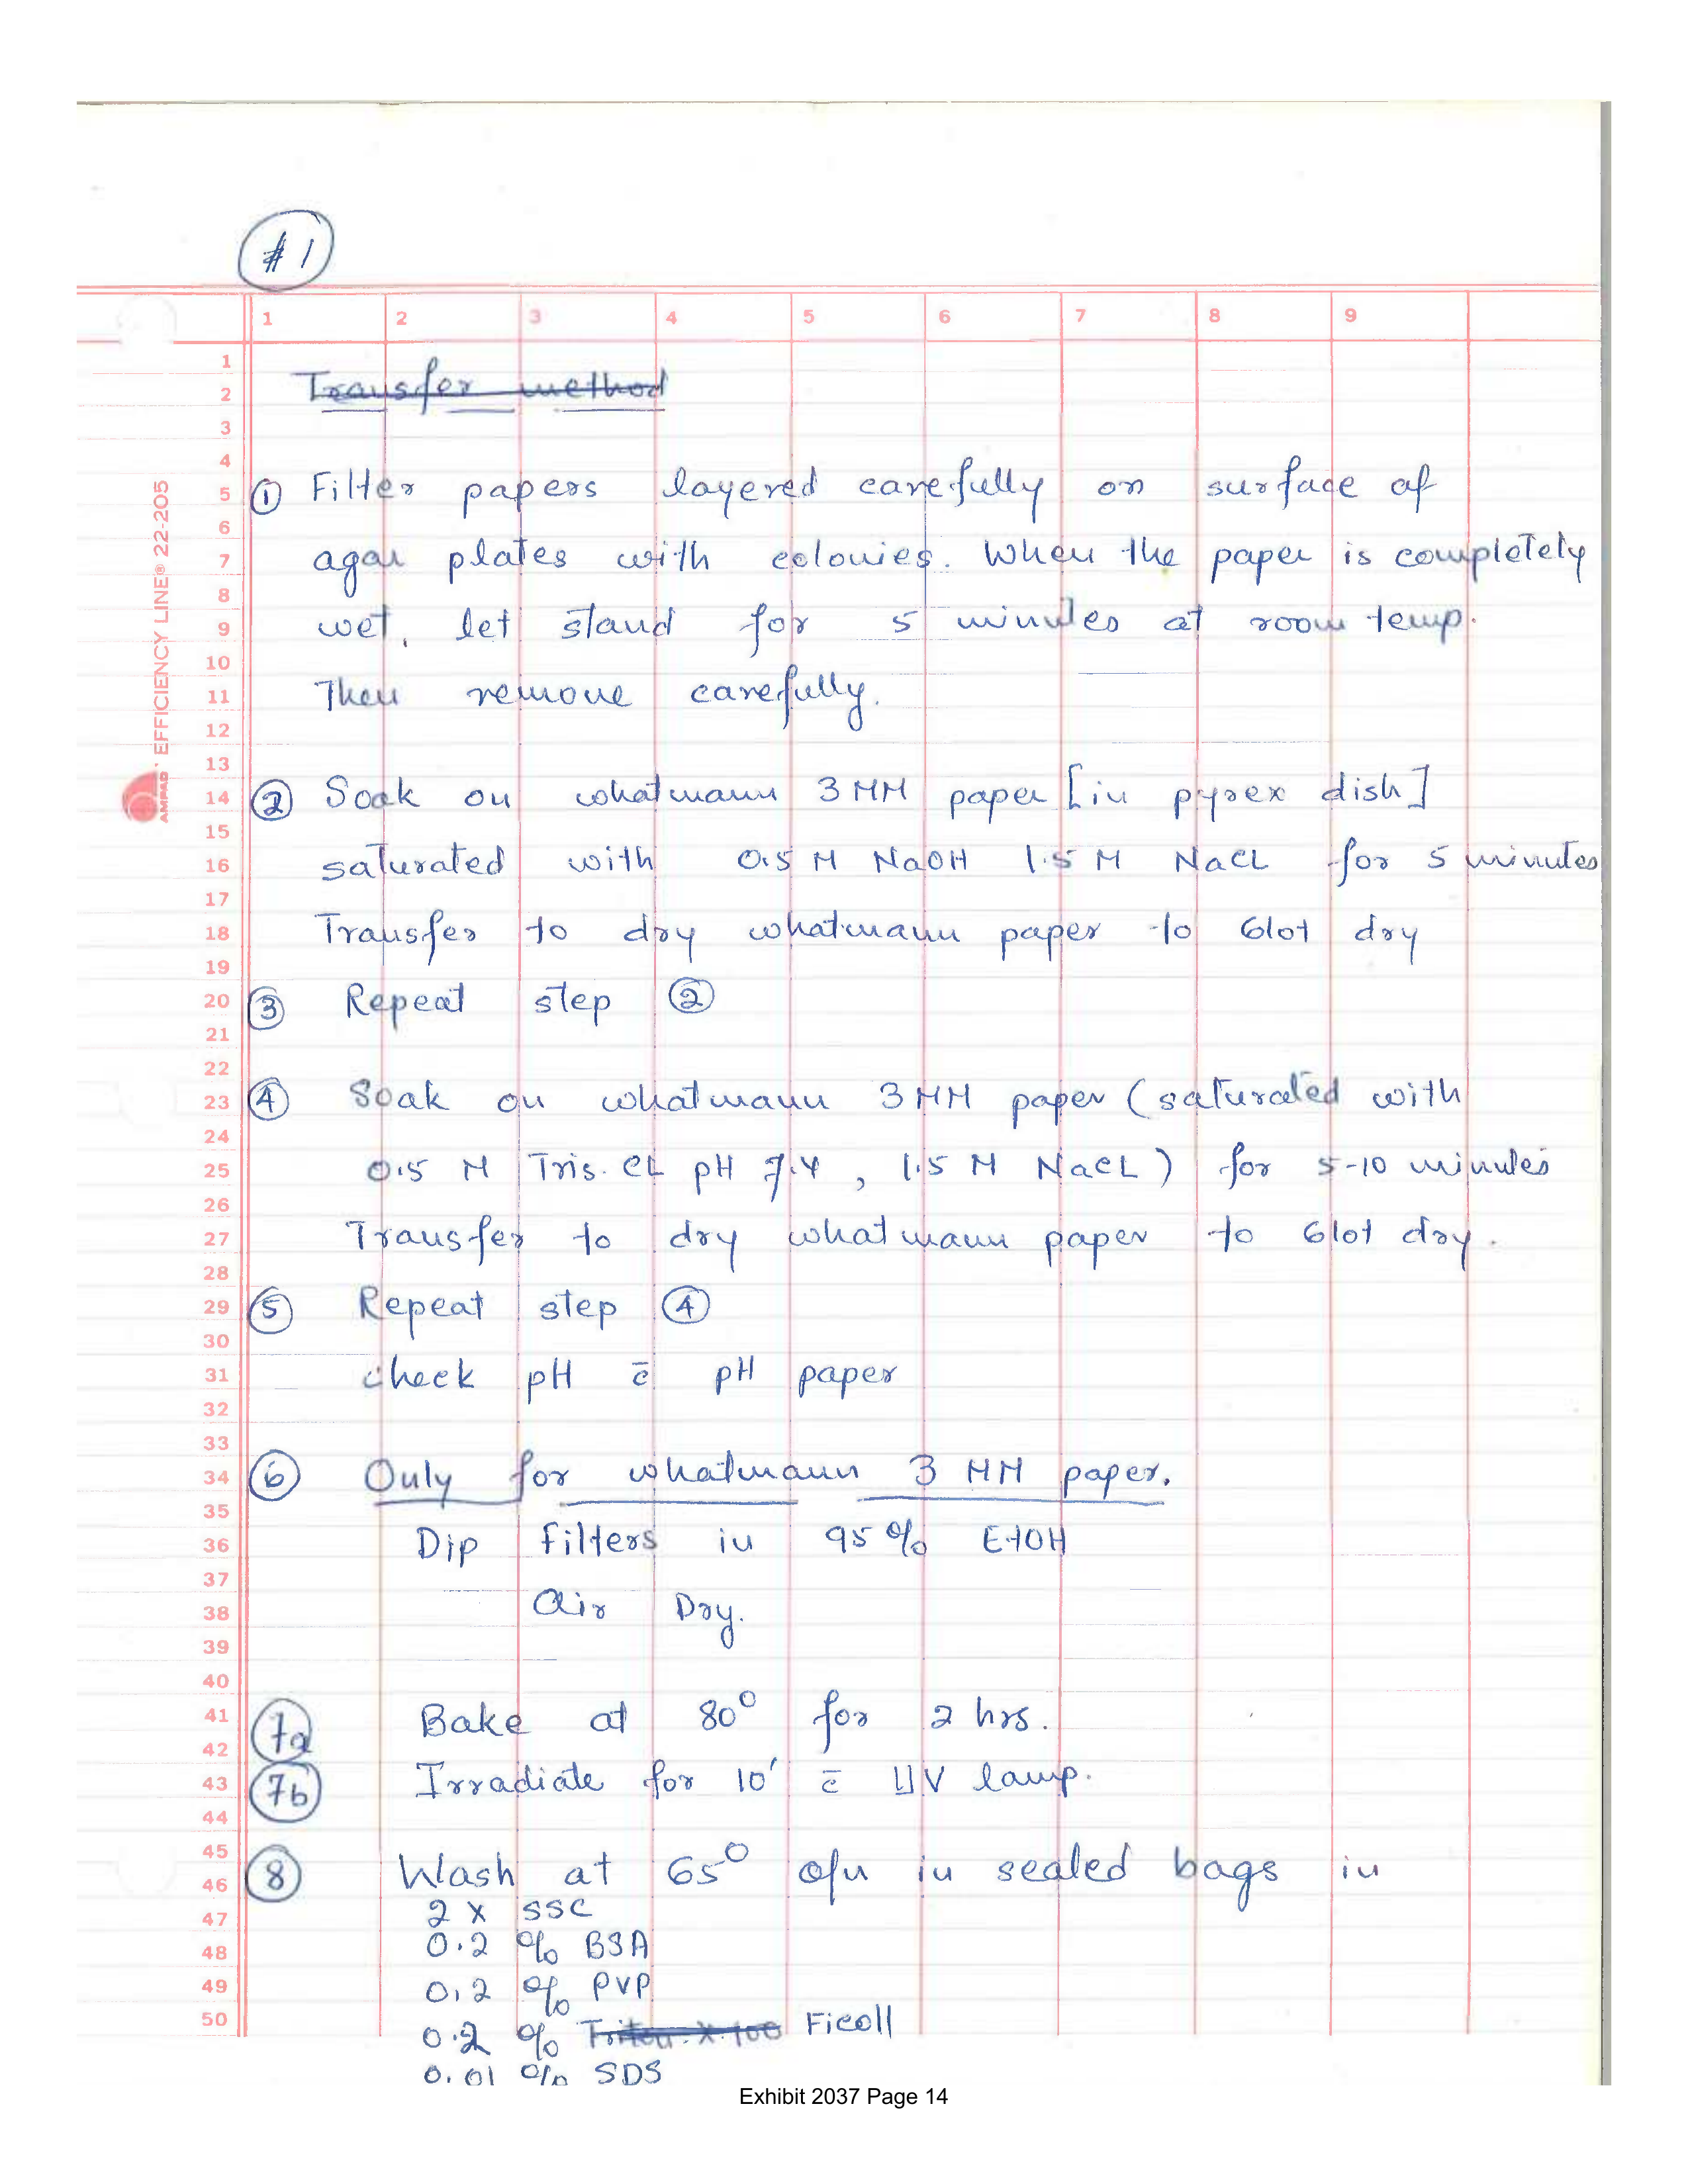 #1
1 2 3 4 5 6 7 8 9
Transfer method
① Filter papers layered carefully on surface of
agar plates with colonies. When the paper is completely
wet, let stand for 5 minutes at room temp.
Then remove carefully.
② Soak on whatmann 3 MM paper [in pyrex dish]
saturated with 0.5 M NaOH 1.5 M NaCl for 5 minutes
Transfer to dry whatmann paper to blot dry
③ Repeat step ②
④ Soak on whatmann 3 MM paper (saturated with
0.5 M Tris. Cl pH 7.4, 1.5 M NaCl) for 5-10 minutes
Transfer to dry whatmann paper to blot dry.
⑤ Repeat step ④
check pH c̄ pH paper
⑥ Only for whatmann 3 MM paper.
Dip filters in 95% EtOH
Air Dry.
7a Bake at 80° for 2 hrs.
7b Irradiate for 10' c̄ UV lamp.
⑧ Wash at 65° o/n in sealed bags in
2 x SSC
0.2 % BSA
0.2 % PVP
0.2 % Triton. X.100 Ficoll
0.01 % SDS
1
2
3
4
5
6
7
8
9
10
11
12
13
14
15
16
17
18
19
20
21
22
23
24
25
26
27
28
29
30
31
32
33
34
35
36
37
38
39
40
41
42
43
44
45
46
47
48
49
50
AMPAD · EFFICIENCY LINE® 22-205
Exhibit 2037 Page 14